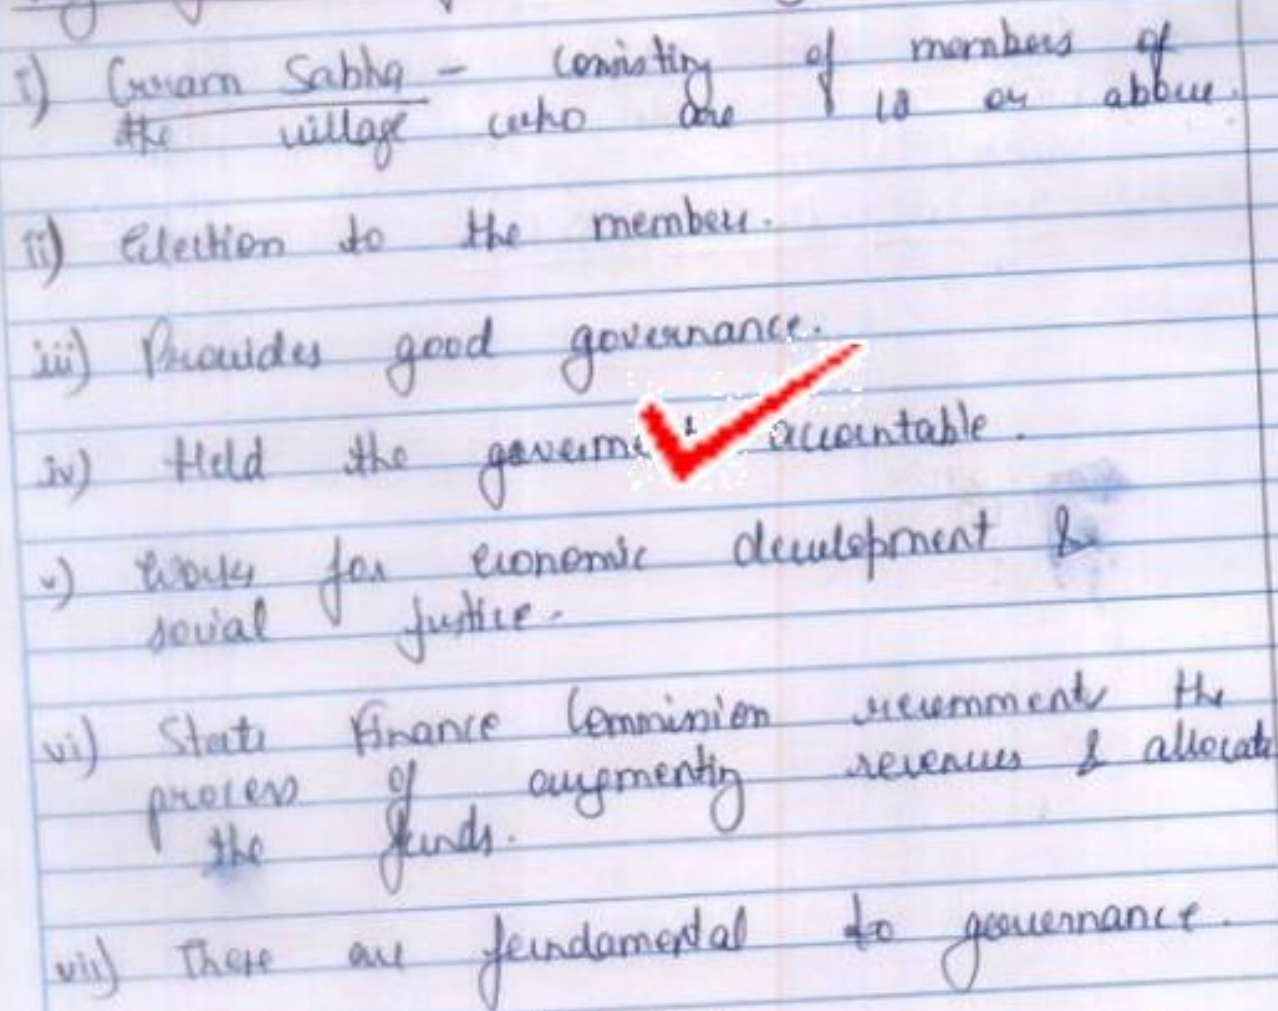 i) Gram Sabha - Consisting of members of
the village who are 18 or above.
ii) Election to the members.
iii) Provides good governance.
iv) Held the accountable.
v) Works for economic development &
social justice.
vi) State Finance Commission recomments the
process of augmenting revenues & allocate
the funds.
vii) These are fundamental to governance.